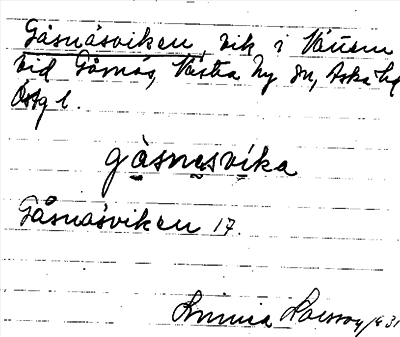 Gåsnäsviken, vik i Vänern
vid Gåsnäs, Västra Ny sn, Aska hd
Östg l.
gåsnesvika
Gåsnäsviken 17.
Linnea Larsson 1931